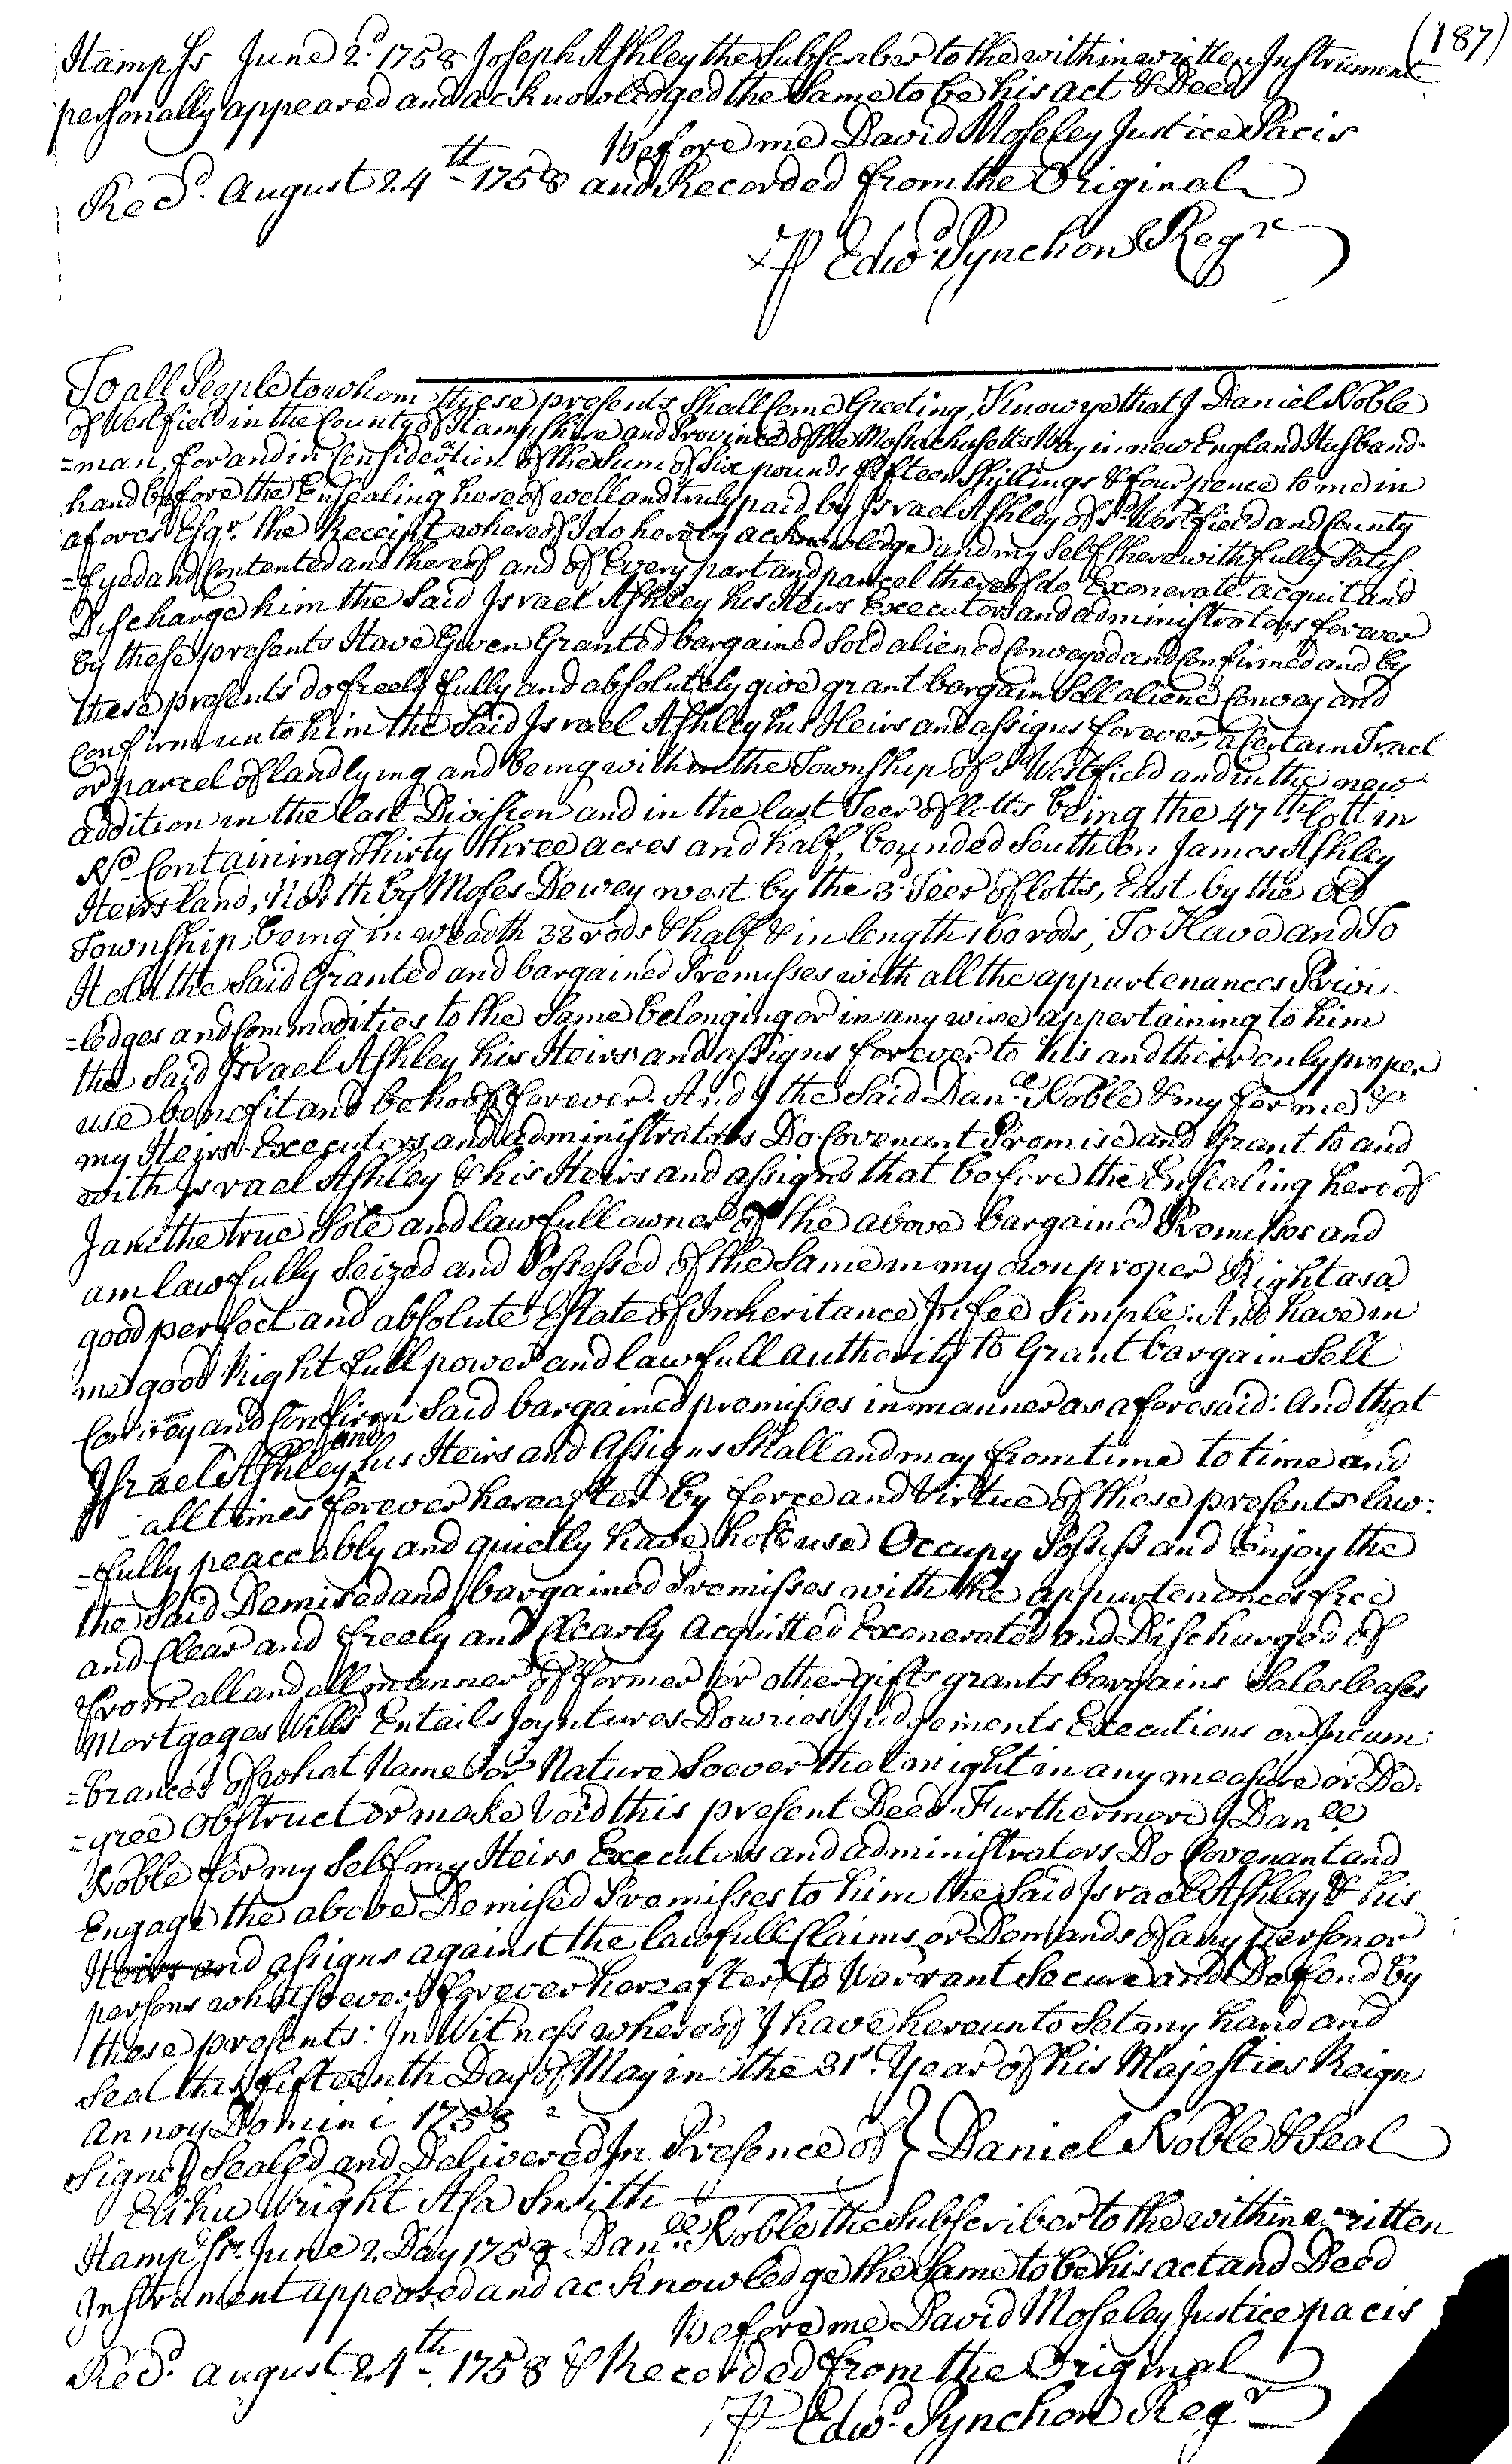 (187)
Hampss June 2d. 1758 Joseph Ashley the Subscriber to the within written Instrument
personally appeared and acknowledged the Same to be his act & Deed
Before me David Moseley Justice Pacis
Recd. August 24th 1758 and Recorded from the Original
P Edwd. Pynchon Regr
To all People to whom these presents Shall Come Greeting, Know ye that I Daniel Noble
of Westfield in the County of Hampshire and Province of the Massachusetts Bay in new England Husband-
=man, for and in Consideration of the Sum of Six pounds fifteen Shillings & four pence to me in
hand before the Ensealing hereof well and truly paid by Israel Ashley of sd. Westfield and County
aforesd Esqr. the Receipt whereof I do hereby acknowledge and my Self therewith fully Satis-
=fyed and Contented and thereof and of Every part and parcel thereof do Exonerate acquit and
Discharge him the Said Israel Ashley his Heirs Executors and administrators forever
by these presents Have Given Granted bargained Sold aliened Conveyed and Confirmed and by
these presents do freely fully and absolutely give grant bargain Sell aliene Convey and
Confirm unto him the Said Israel Ashley his Heirs and assigns forever, a Certain Tract
or parcel of land lying and being within the Township of sd Westfield and in the new
addition in the last Division and in the last Teer of lotts being the 47th. lott in
sd. Containing Thirty three acres and half, bounded South on James Ashley
Heirs land, North by Moses Dewey west by the 3d. Teer of lotts, East by the old
Township being in weadth 33 rods & half & in length 160 rods, To Have and To
Hold the Said Granted and bargained Premisses with all the appurtenances Privi-
=ledges and Commodities to the Same belonging or in any wise appertaining to him
the Said Israel Ashley his Heirs and assigns forever to his and their only proper
use benefit and behoof forever. And I the Said Danll. Noble & my for me &
my Heirs Executors and administrators Do Covenant Promise and Grant to and
with Israel Ashley & his Heirs and assigns that before the Ensealing hereof
I am the true Sole and lawfull owner of the above bargained Premisses and
am lawfully Seized and Possessed of the Same in my own proper Right as a
good perfect and absolute Estate of Inheritance In fee Simple: And have in
me good Right full power and lawfull authority to Grant bargain Sell
Convey and Confirm Said bargained premisses in manner as aforesaid: And that
Israel Ashley and his Heirs and Assigns Shall and may from time to time and
all times forever hereafter by force and Virtue of these presents law:
=fully peaceably and quietly have hold use Occupy Possess and Enjoy the
the Said Demised and bargained Premisses with the appurtenances free
and Clear and freely and Clearly Acquitted Exonerated and Discharged of
from all and all manner of former or other gifts grants bargains Sales leases
Mortgages Wills Entails Joyntures Dowries Judgements Executions or Incum:
=brances of what Name or Nature Soever that might in any measure or De:
=gree Obstruct or make Void this present Deed. Furthermore I Danll
Noble for my Self my Heirs Executors and administrators Do Covenant and
Engage the above Demised Premisses to him the Said Israel Ashley & his
Heirs and assigns against the lawfull Claims or Demands of any person or
persons whatsoever forever hereafter to Warrant Secure and Defend by
these presents: In Witness whereof I have hereunto Set my hand and
Seal this fifteenth Day of May in the 31st. Year of his Majesties Reign
Annoy Domini 1758
Signed Sealed and Delivered In Presence of } Daniel Noble & Seal
Elihu Wright Asa Smith
Hampsr. June 2 Day 1758 Danll. Noble the Subscriber to the within written
Instrument appeared and acknowledge the Same to be his act and Deed
Before me David Moseley Justice pacis
Recd. august 24th. 1758 & Recorded from the Original
P Edwd. Pynchon Regr